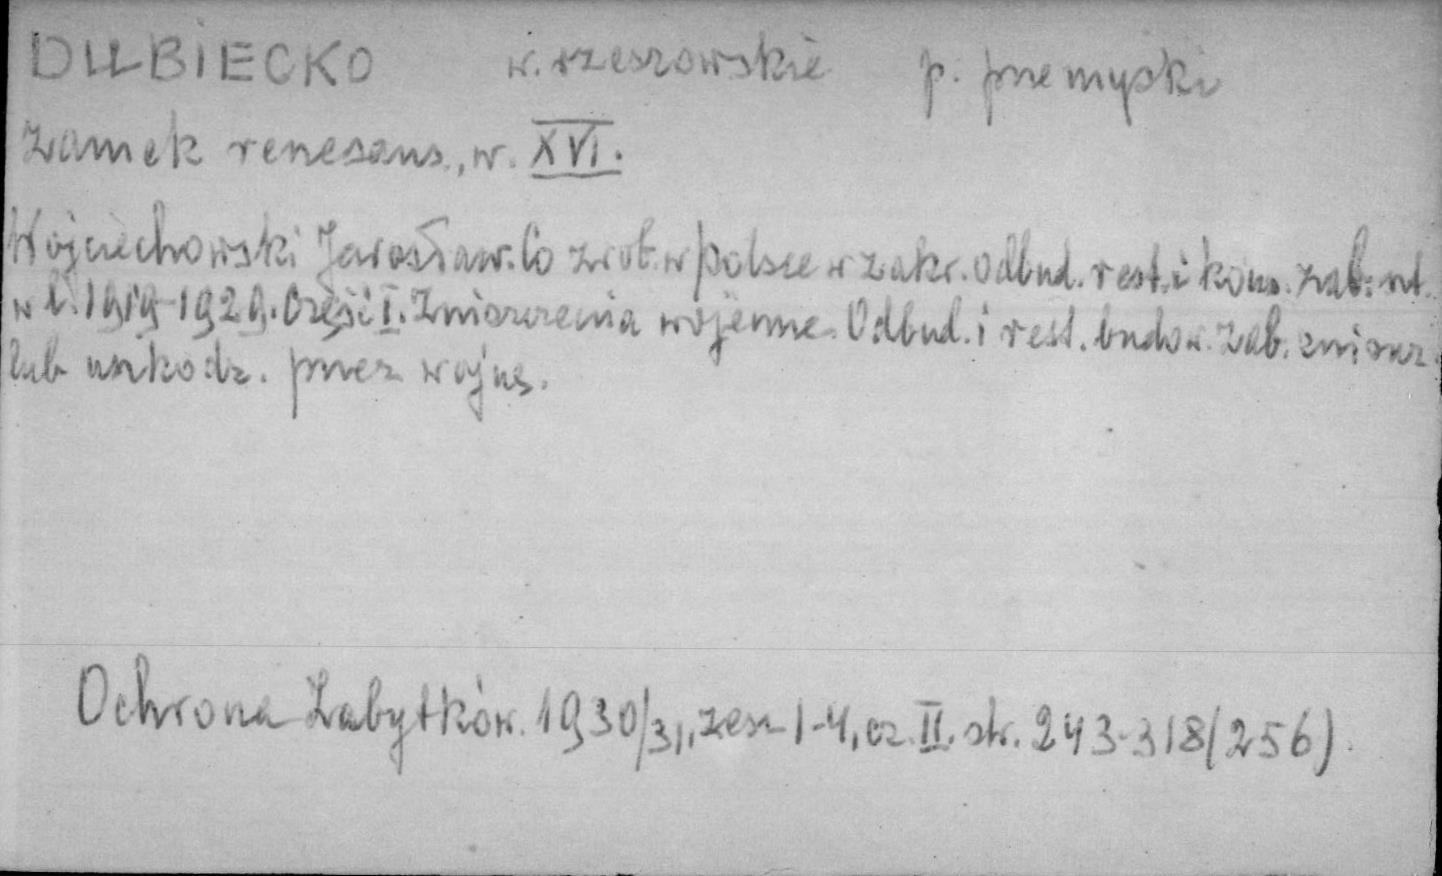 DUBIECKO w. rzeszowskie p. przemyski
Zamek renesans., w. XVI.
Wojciechowski Jarosław. Co zrob. w Polsce w zakr. odbud. rest. i kons. zab. szt.
w l. 1919-1929. Część I. Zniszczenia wojenne. Odbud. i rest. budow. zab. zniszcz.
lub uszkodz. przez wojnę.
Ochrona Zabytków. 1930/31, zesz 1-4, cz. II. str. 243-318 (256).